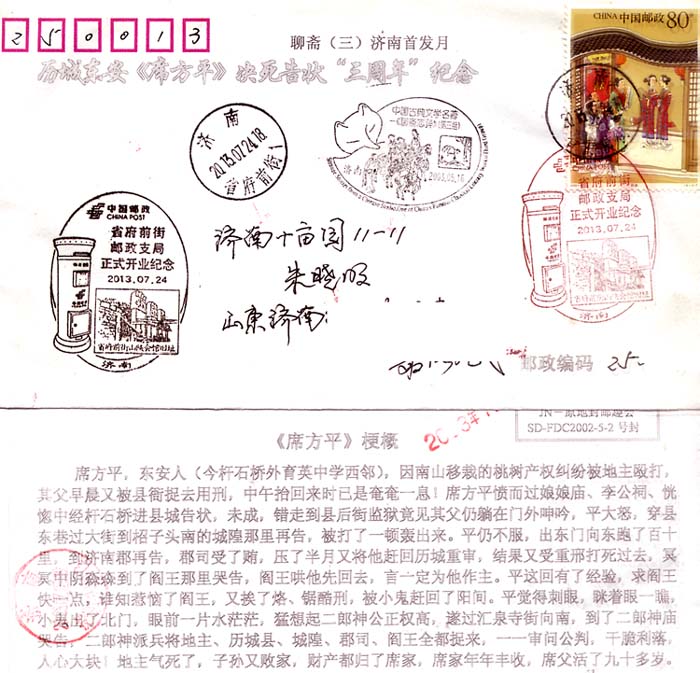 250013
聊斋（三）济南首发月
CHINA 中国邮政 80分
历城东安《席方平》决死告状“三周年”纪念
济南
2013.07.24.18
省府前街
中国古典文学名著
济南
中国邮政
CHINA POST
省府前街
邮政支局
正式开业纪念
2013.07.24
省府前街山陕会馆旧址
济南
省府前街
邮政支局
正式开业纪念
2013.07.24
济南
济南十亩园11-11
朱晓
山东济南
邮政编码 25
JN－原地封邮趣会
SD-FDC2002-5-2 号封
《席方平》梗概
席方平，东安人（今杆石桥外育英中学西邻），因南山移栽的桃树产权纠纷被地主殴打，
其父早晨又被县衙捉去用刑，中午抬回来时已是奄奄一息！席方平愤而过娘娘庙、李公祠、恍
惚中经杆石桥进县城告状，未成，错走到县后街监狱竟见其父仍躺在门外呻吟，平大怒，穿县
东巷过大街到招子头南的城隍那里再告，被打了一顿轰出来。平仍不服，出东门向东跑了百十
里，到济南郡再告，郡司受了贿，压了半月又将他赶回历城重审，结果又受重刑打死过去，冥
冥中阴森森到了阎王那里哭告，阎王哄他先回去，言一定为他作主。平这回有了经验，求阎王
快一点，谁知惹恼了阎王，又挨了烙、锯酷刑，被小鬼赶回了阳间。平觉得刺眼，眯着眼一瞧，
小鬼出了北门，眼前一片水茫茫，猛想起二郎神公正权高，遂过汇泉寺街向南，到了二郎神庙
哭告，二郎神派兵将地主、历城县、城隍、郡司、阎王全都捉来，一一审问公判，干脆利落，
人心大块！地主气死了，子孙又败家，财产都归了席家，席家年年丰收，席父活了九十多岁。